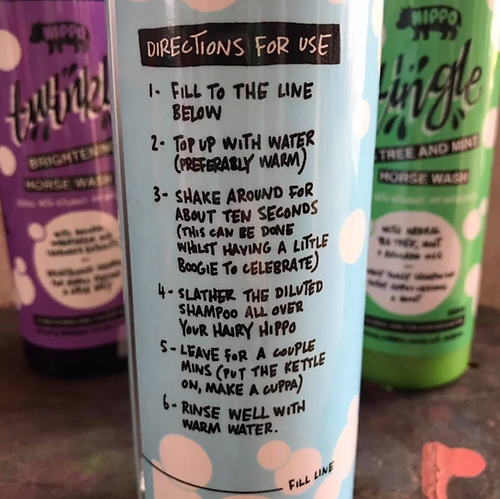 HIPPO
twinkl
BRIGHTENIN
HORSE WASH
DIRECTIONS FOR USE
1- FILL TO THE LINE
BELOW
2- TOP UP WITH WATER
(PREFERABLY WARM)
3- SHAKE AROUND FOR
ABOUT TEN SECONDS
(THIS CAN BE DONE
WHILST HAVING A LITTLE
BOOGIE TO CELEBRATE)
4- SLATHER THE DILUTED
SHAMPOO ALL OVER
YOUR HAIRY HIPPO
5- LEAVE FOR A COUPLE
MINS (PUT THE KETTLE
ON, MAKE A CUPPA)
6- RINSE WELL WITH
WARM WATER.
FILL LINE
HIPPO
tingle
TREE AND MINT
HORSE WASH